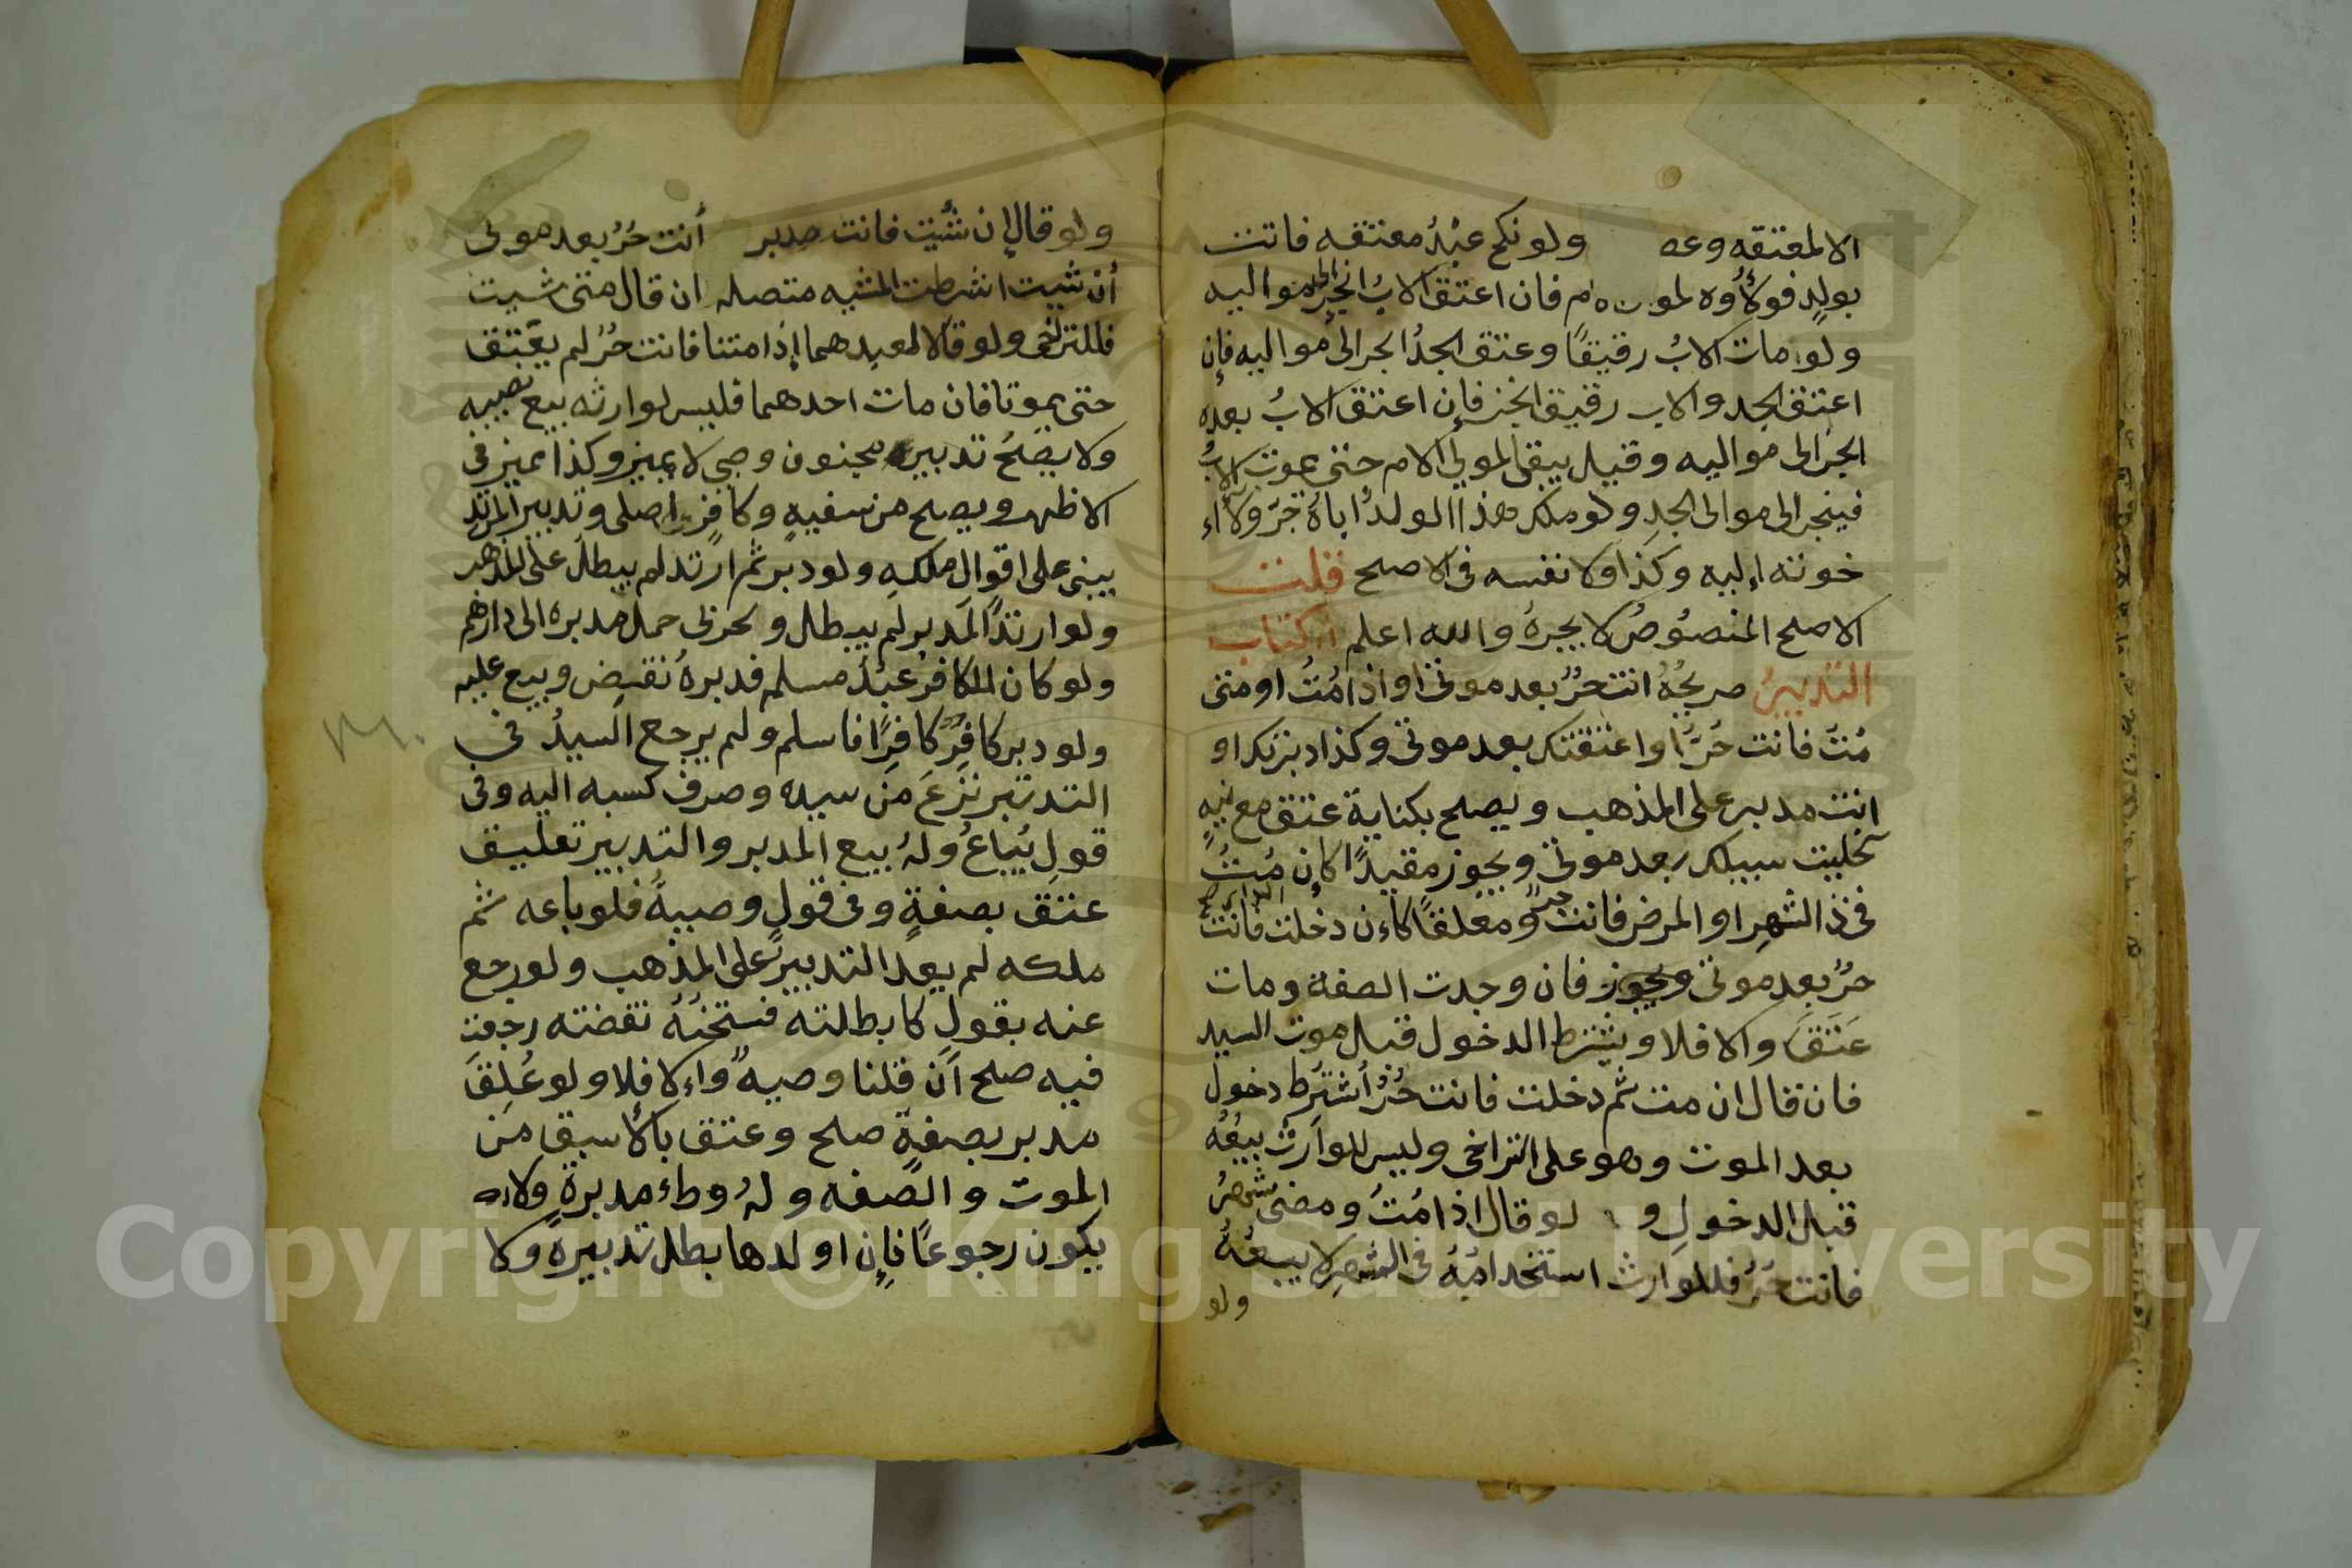 الا لمعتقه وعص ولو نكح عبدُ معتقه فاتت
بولدٍ فولأُوه لمو م فان اعتق الابُ انجر الى مواليه
ولو مات الابُ رقيقًا وعتق الجدُ انجر الى مواليه فإن
اعتق الجد والاب رقيق انجر فإن اعتق الابُ بعده
انجر الى مواليه وقيل يبقى لموالي الام حتى يموت الابُ
فينجر الى موالى الجدِ ولو ملك هذا الولدُ اباهُ جرّ ولآاء
خوته إليه وكذا ولا نفسه فى الاصح قلت
الاصح المنصُوصُ لا يجرهُ والله اعلم كتاب
التدبيرُ صريحُهُ انت حُرٌ بعد موتى او اذامُتُ او متى
مُتُ فانت حُرٌ او اعتقتك بعد موتى وكذا دبرتك او
انت مدبر على المذهب ويصح بكناية عتق مع نيهٍ
كخليت سبيلك بعد موتى ويجوز مقيدًا كإن مُتُ
فى ذا الشهرِ او المرض فانت حرٌ ومعلقًا كاءن دخلت فانت
حرٌ بعد موتى فان وجدت الصفة ومات
عَتَقَ والا فلا ويشترط الدخول قبل موت السيد
فان قال ان مت ثم دخلت فانت حُرٌ أُشترُط دخول
بعد الموت وهو على التراخى وليس للوارث بيعُهُ
قبل الدخولِ و لو قال اذا مُتُ ومضى شهرٌ
فانت حُرٌ فللوارث استخدامُهُ فى الشهرِ لا بيعُهُ
ولو
ولو قال إن شيت فانت مدبر أنت حُرٌ بعد موتى
أن شيت اشرطت المشيه متصله ان قال متى شيت
فللتراخى ولو قالا لعبدهما إذا متنا فانت حُرٌ لم يعتق
حتى يموتا فان مات احدهما فليس لوارثه بيع نصيبه
ولا يصحُ تدبير مجنون وصبى لا يميز وكذا مميز فى
الاظهر ويصح من سفيهٍ وكافرٍ اصلى وتدبير المرتد
يبنى على اقوال ملكهِ ولو دبر ثم ارتد لم يبطل على المذهب
ولو ارتدَّ المدبر لم يبطل ولحربى حمل مدبره الى دارهم
ولو كان لكافرٍ عبدُ مسلم فدبرهُ نقيض وبيع عليه
ولو دبر كافرٌ كافِرًا فاسلم ولم يرجع السيدُ فى
التدبير نزعَ من سيده وصرف كسبه اليه وفى
قولٍ يُباعُ ولهُ بيع المدبر والتدبير تعليق
عتق بصفةٍ وفى قولٍ وصيةٌ فلو باعه ثم
ملكه لم يعد التدبيرُ على المذهب ولو رجع
عنه بقولٍ كابطلته فسختهُ نقضته رجعت
فيه صح أن قلنا وصيهٌ واءلا فلا ولو عُلِقَ
مدبر بصفةٍ صح وعتق بالأسبق من
الموت والصفه ولهُ وطاء مدبرةٍ ولا
يكون رجوعًا فإن اولدها بطل تدبيرهُ ولا
Copyright © King Saud University